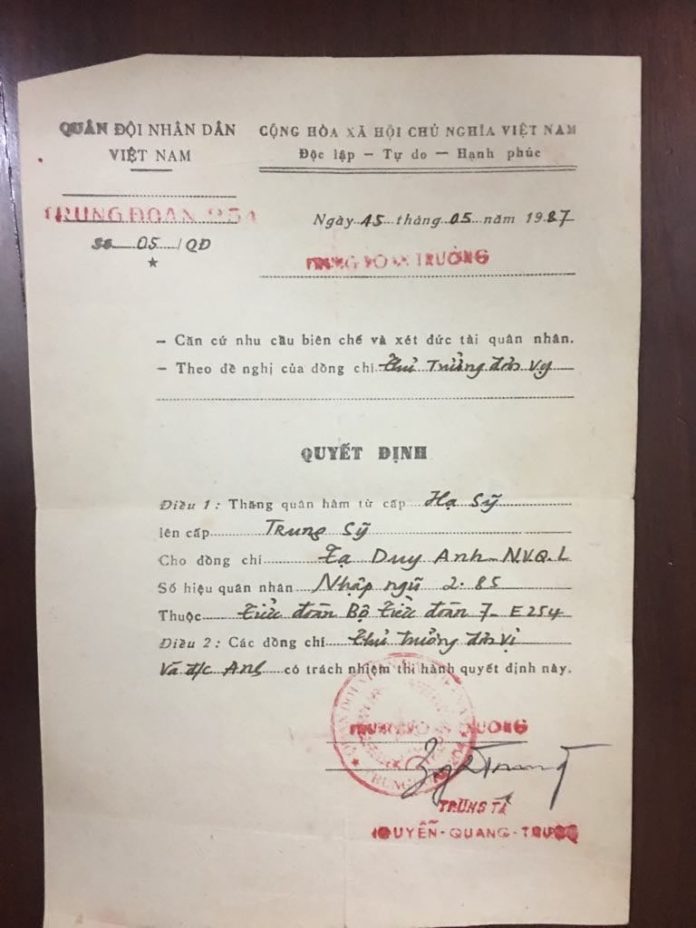 QUÂN ĐỘI NHÂN DÂN
VIỆT NAM
CỘNG HÒA XÃ HỘI CHỦ NGHĨA VIỆT NAM
Độc lập — Tự do — Hạnh phúc
TRUNG ĐOÀN 254
Số 05 /QĐ
Ngày 15 tháng 05 năm 1987
TRUNG ĐOÀN TRƯỞNG
— Căn cứ nhu cầu biên chế và xét đức tài quân nhân.
— Theo đề nghị của đồng chí Thủ Trưởng đơn vị
QUYẾT ĐỊNH
Điều 1 : Thăng quân hàm từ cấp Hạ Sỹ
lên cấp Trung Sỹ
Cho đồng chí Tạ Duy Anh - N.V.Q.L
Số hiệu quân nhân Nhập ngũ 2.85
Thuộc Tiểu đoàn Bộ Tiểu đoàn 7 - E254
Điều 2 : Các đồng chí Thủ trưởng đơn vị
Và đ/c Anh có trách nhiệm thi hành quyết định này.
TRUNG ĐOÀN TRƯỞNG
TRUNG TÁ
NGUYỄN-QUANG-TRUNG